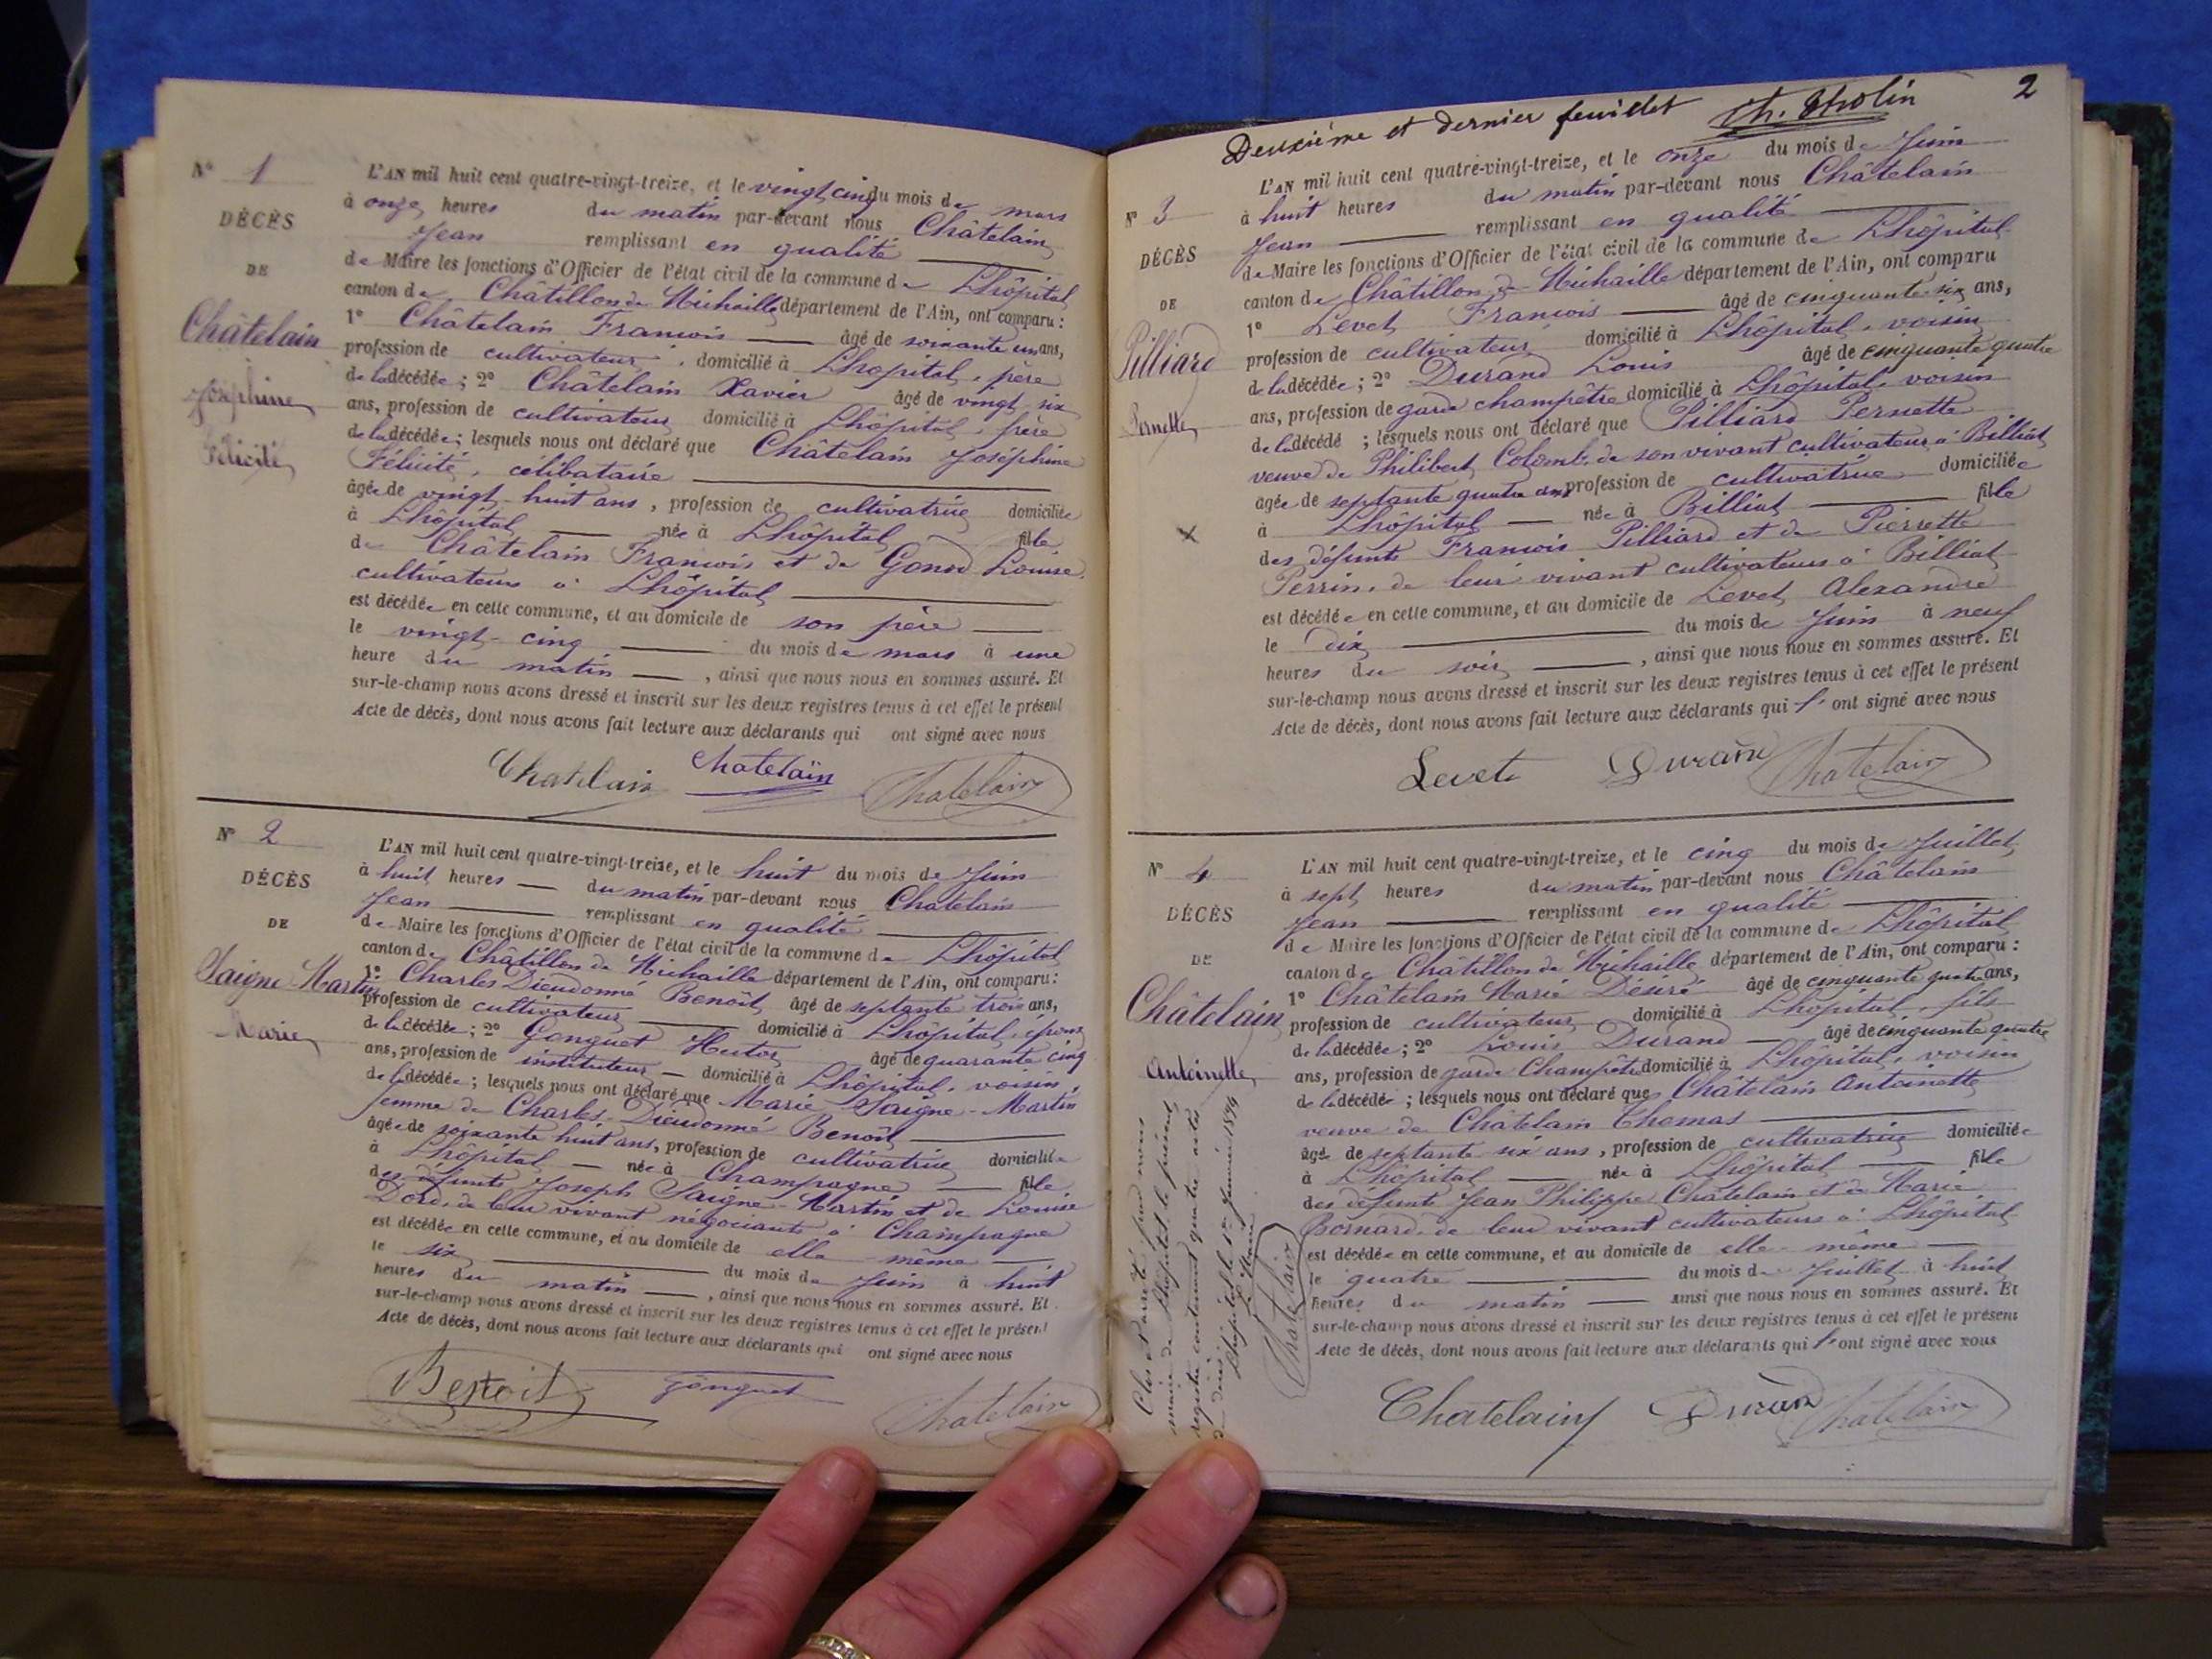 N° 1
DÉCÈS
DE
Châtelain
Joséphine
Félicité
L'AN mil huit cent quatre-vingt-treize, et le vingt cinq du mois de mars
à onze heures du matin par-devant nous Châtelain
Jean remplissant en qualité
de Maire les fonctions d'Officier de l'état civil de la commune de Lhôpital
canton de Châtillon de Michaille département de l'Ain, ont comparu :
1° Châtelain François âgé de soixante un ans,
profession de cultivateur, domicilié à Lhopital, père
de la décédée ; 2° Châtelain Xavier âgé de vingt six
ans, profession de cultivateur domicilié à Lhôpital, frère
de la décédée ; lesquels nous ont déclaré que Châtelain Joséphine
Félicité, célibataire
âgée de vingt-huit ans, profession de cultivatrice domiciliée
à Lhôpital née à Lhôpital fille
de Châtelain François et de Gonod Louise
cultivateurs à Lhôpital
est décédée en cette commune, et au domicile de son père
le vingt-cinq du mois de mars à une
heure du matin, ainsi que nous nous en sommes assuré. Et
sur-le-champ nous avons dressé et inscrit sur les deux registres tenus à cet effet le présent
Acte de décès, dont nous avons fait lecture aux déclarants qui ont signé avec nous
Chatelain Chatelain Chatelain
N° 2
DÉCÈS
DE
Saigne-Martin
Marie
L'AN mil huit cent quatre-vingt-treize, et le huit du mois de Juin
à huit heures du matin par-devant nous Chatelain
Jean remplissant en qualité
de Maire les fonctions d'Officier de l'état civil de la commune de Lhôpital
canton de Châtillon de Michaille département de l'Ain, ont comparu :
1° Charles Dieudonné Benoît âgé de septante trois ans,
profession de cultivateur domicilié à Lhôpital, époux
de la décédée ; 2° Gonguet Hector âgé de quarante cinq
ans, profession de instituteur domicilié à Lhôpital, voisin,
de la décédée ; lesquels nous ont déclaré que Marie Saigne-Martin
femme de Charles-Dieudonné Benoît
âgée de soixante huit ans, profession de cultivatrice domiciliée
à Lhôpital née à Champagne fille
des défunts Joseph Saigne-Martin et de Louise
Dord, de leur vivant négociants à Champagne
est décédée en cette commune, et au domicile de elle-même
le six du mois de Juin à huit
heures du matin, ainsi que nous nous en sommes assuré. Et
sur-le-champ nous avons dressé et inscrit sur les deux registres tenus à cet effet le présent
Acte de décès, dont nous avons fait lecture aux déclarants qui ont signé avec nous
Benoit Gonguet Chatelain
2
Deuxième et dernier feuillet
N° 3
DÉCÈS
DE
Pilliard
Pernette
X
L'AN mil huit cent quatre-vingt-treize, et le onze du mois de Juin
à huit heures du matin par-devant nous Châtelain
Jean remplissant en qualité
de Maire les fonctions d'Officier de l'état civil de la commune de Lhôpital
canton de Châtillon de Michaille département de l'Ain, ont comparu
1° Levet François âgé de cinquante-six ans,
profession de cultivateur domicilié à Lhôpital, voisin
de la décédée ; 2° Durand Louis âgé de cinquante quatre
ans, profession de garde champêtre domicilié à Lhôpital, voisin
de la décédé ; lesquels nous ont déclaré que Pilliard Pernette
veuve de Philibert Colomb, de son vivant cultivateur à Billiat
âgée de septante quatre ans profession de cultivatrice domiciliée
à Lhôpital née à Billiat fille
des défunts François Pilliard et de Pierrette
Perrin, de leur vivant cultivateurs à Billiat
est décédée en cette commune, et au domicile de Levet Alexandre
le dix du mois de Juin à neuf
heures du soir, ainsi que nous nous en sommes assuré. Et
sur-le-champ nous avons dressé et inscrit sur les deux registres tenus à cet effet le présent
Acte de décès, dont nous avons fait lecture aux déclarants qui l' ont signé avec nous
Levet Durand Chatelain
N° 4
DÉCÈS
DE
Châtelain
Antoinette
L'AN mil huit cent quatre-vingt-treize, et le cinq du mois de Juillet
à sept heures du matin par-devant nous Châtelain
Jean remplissant en qualité
de Maire les fonctions d'Officier de l'état civil de la commune de Lhôpital
canton de Châtillon de Michaille département de l'Ain, ont comparu :
1° Châtelain Marie Désiré âgé de cinquante quatre ans,
profession de cultivateur domicilié à Lhopital, fils
de la décédée ; 2° Louis Durand âgé de cinquante quatre
ans, profession de garde Champêtre domicilié à Lhôpital, voisin
de la décédée ; lesquels nous ont déclaré que Châtelain Antoinette
veuve de Châtelain Thomas
âgée de septante six ans, profession de cultivatrice domiciliée
à Lhôpital née à Lhôpital fille
des défunts Jean Philippe Châtelain et de Marie
Bornard, de leur vivant cultivateurs à Lhôpital
est décédée en cette commune, et au domicile de elle-même
le quatre du mois de Juillet à huit
heures du matin ainsi que nous nous en sommes assuré. Et
sur-le-champ nous avons dressé et inscrit sur les deux registres tenus à cet effet le présent
Acte de décès, dont nous avons fait lecture aux déclarants qui l' ont signé avec nous
Chatelain Durand Chatelain
Clos et arrêté par nous
maire de Lhopital le présent
registre contenant quatre actes
Lhôpital le 1er Janvier 1894
Le Maire
Chatelain